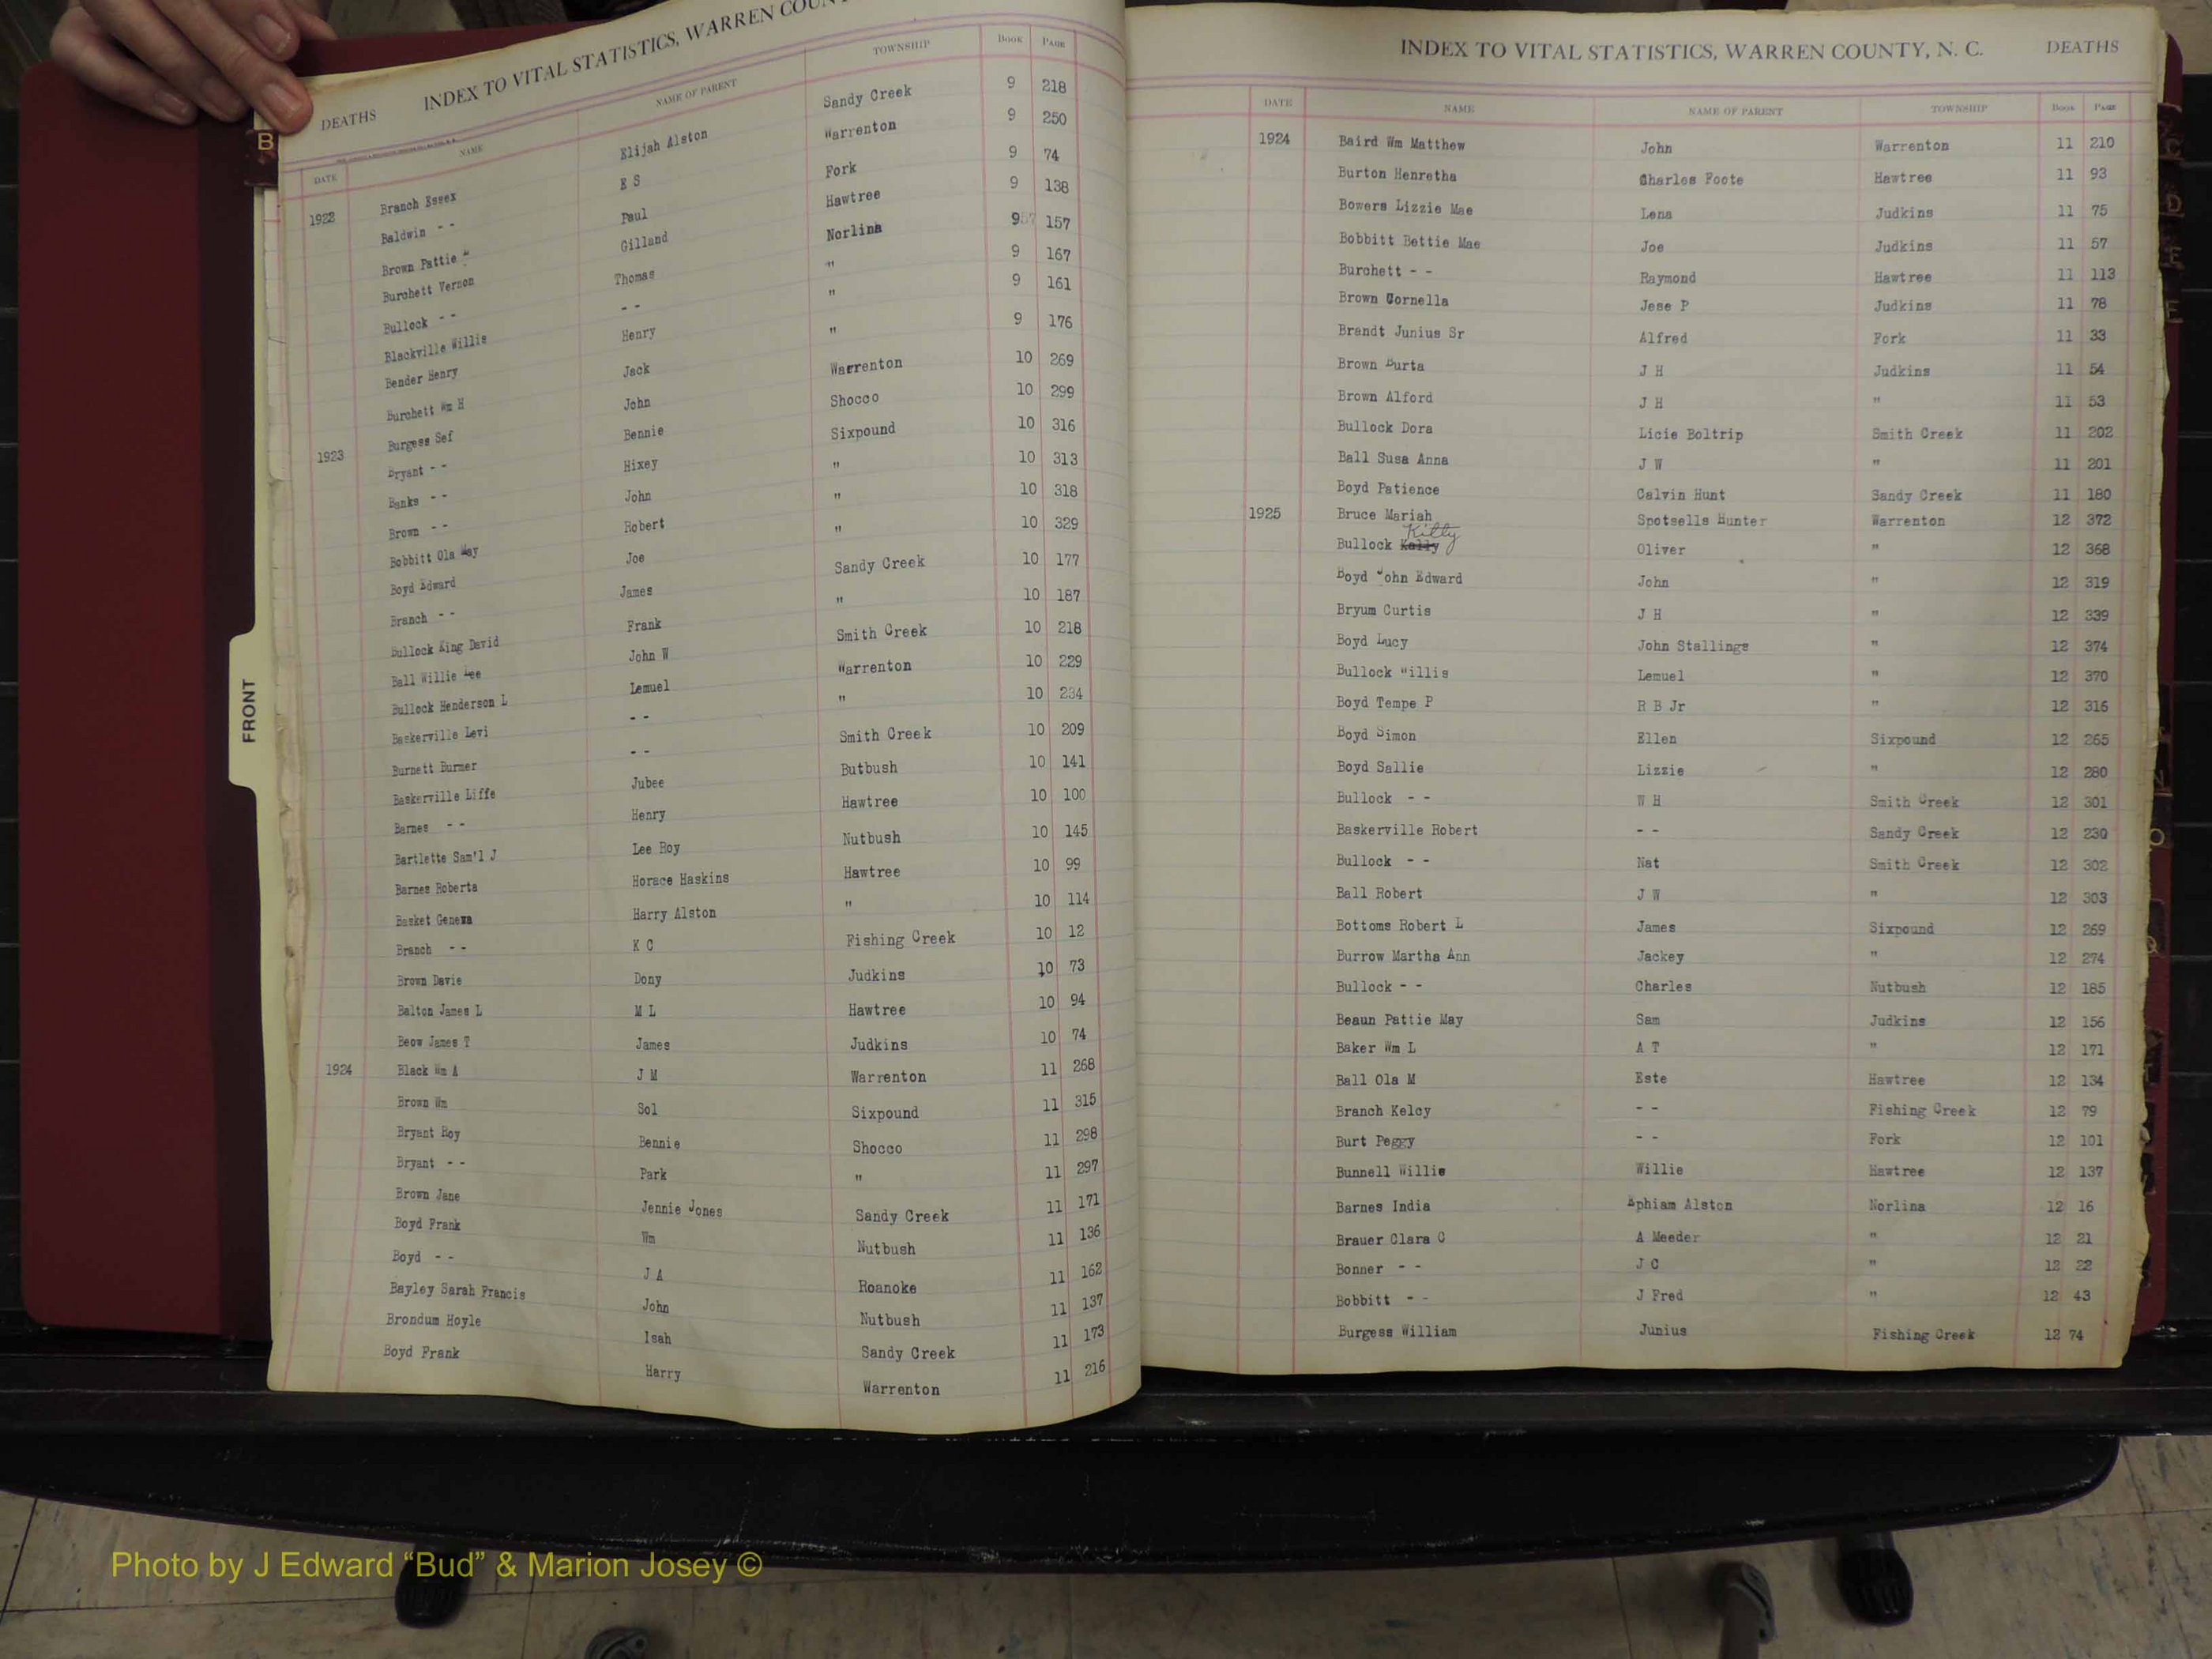 DEATHS INDEX TO VITAL STATISTICS, WARREN COUN
DATE NAME NAME OF PARENT TOWNSHIP BOOK PAGE
1922 Branch Essex Elijah Alston Sandy Creek 9 218
Baldwin - - E S Warrenton 9 250
Brown Pattie Paul Fork 9 74
Burchett Vernon Gilland Hawtree 9 138
Bullock - - Thomas Norlina 9 157
Blackville Willis - - " 9 167
Bender Henry Henry " 9 161
Burchett Wm H Jack " 9 176
1923 Burgess Sef John Warrenton 10 269
Bryant - - Bennie Shocco 10 299
Banks - - Hixey Sixpound 10 316
Brown - - John " 10 313
Bobbitt Ola May Robert " 10 318
Boyd Edward Joe " 10 329
Branch - - James Sandy Creek 10 177
Bullock King David Frank " 10 187
Ball Willie Lee John W Smith Creek 10 218
Bullock Henderson L Lemuel Warrenton 10 229
Baskerville Levi - - " 10 234
Burnett Burner - - Smith Creek 10 209
Baskerville Liffe Jubee Butbush 10 141
Barnes - - Henry Hawtree 10 100
Bartlette Sam'l J Lee Roy Nutbush 10 145
Barnes Roberta Horace Haskins Hawtree 10 99
Basket Geneva Harry Alston " 10 114
Branch - - K C Fishing Creek 10 12
Brown Davie Dony Judkins 10 73
Balton James L M L Hawtree 10 94
Beow James T James Judkins 10 74
1924 Black Wm A J M Warrenton 11 268
Brown Wm Sol Sixpound 11 315
Bryant Roy Bennie Shocco 11 298
Bryant - - Park " 11 297
Brown Jane Jennie Jones Sandy Creek 11 171
Boyd Frank Wm Nutbush 11 136
Boyd - - J A Roanoke 11 162
Bayley Sarah Francis John Nutbush 11 137
Brondum Hoyle Isah Sandy Creek 11 173
Boyd Frank Harry Warrenton 11 216
B
FRONT
INDEX TO VITAL STATISTICS, WARREN COUNTY, N. C. DEATHS
DATE NAME NAME OF PARENT TOWNSHIP BOOK PAGE
1924 Baird Wm Matthew John Warrenton 11 210
Burton Henretha Charles Foote Hawtree 11 93
Bowers Lizzie Mae Lena Judkins 11 75
Bobbitt Bettie Mae Joe Judkins 11 57
Burchett - - Raymond Hawtree 11 113
Brown Cornella Jese P Judkins 11 78
Brandt Junius Sr Alfred Fork 11 33
Brown Burta J H Judkins 11 54
Brown Alford J H " 11 53
Bullock Dora Licie Boltrip Smith Creek 11 202
Ball Susa Anna J W " 11 201
Boyd Patience Calvin Hunt Sandy Creek 11 180
1925 Bruce Mariah Spotsells Hunter Warrenton 12 372
Bullock Kelly Kitty Oliver " 12 368
Boyd John Edward John " 12 319
Bryum Curtis J H " 12 339
Boyd Lucy John Stallings " 12 374
Bullock "illis Lemuel " 12 370
Boyd Tempe P R B Jr " 12 316
Boyd Simon Ellen Sixpound 12 265
Boyd Sallie Lizzie " 12 280
Bullock - - W H Smith Creek 12 301
Baskerville Robert - - Sandy Creek 12 230
Bullock - - Nat Smith Creek 12 302
Ball Robert J W " 12 303
Bottoms Robert L James Sixpound 12 269
Burrow Martha Ann Jackey " 12 274
Bullock - - Charles Nutbush 12 185
Beaun Pattie May Sam Judkins 12 156
Baker Wm L A T " 12 171
Ball Ola M Este Hawtree 12 134
Branch Kelcy - - Fishing Creek 12 79
Burt Peggy - - Fork 12 101
Bunnell Willie Willie Hawtree 12 137
Barnes India Ephiam Alston Norlina 12 16
Brauer Clara C A Meeder " 12 21
Bonner - - J C " 12 22
Bobbitt - - J Fred " 12 43
Burgess William Junius Fishing Creek 12 74
Photo by J Edward “Bud” & Marion Josey ©